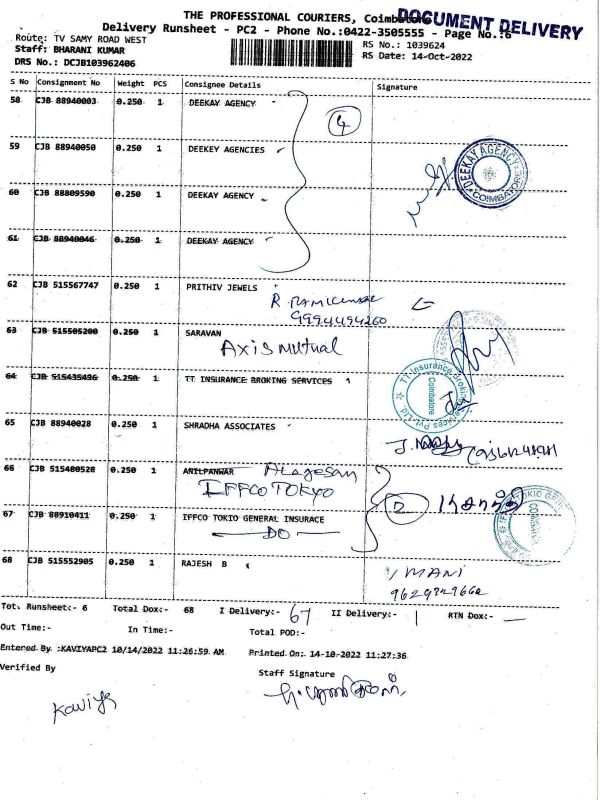 THE PROFESSIONAL COURIERS, Coimbatore
DOCUMENT DELIVERY
Delivery Runsheet - PC2 - Phone No.:0422-3505555 - Page No.:6
Route: TV SAMY ROAD WEST
RS No.: 1039624
Staff: BHARANI KUMAR
RS Date: 14-Oct-2022
DRS No.: DCJB103962406
S No Consignment No Weight PCS Consignee Details Signature
58 CJB 88940003 0.250 1 DEEKAY AGENCY
4
59 CJB 88940050 0.250 1 DEEKEY AGENCIES
DEEKAY AGENCY COIMBATORE
60 CJB 88809590 0.250 1 DEEKAY AGENCY
61 CJB 88940046 0.250 1 DEEKAY AGENCY
62 CJB 515567747 0.250 1 PRITHIV JEWELS
9994494260
63 CJB 515505200 0.250 1 SARAVAN
Axis Mutual
64 CJB 515435496 0.250 1 TT INSURANCE BROKING SERVICES
TT Insurance Broking Services Pvt. Ltd. Coimbatore
65 CJB 88940028 0.250 1 SHRADHA ASSOCIATES
66 CJB 515480528 0.250 1 ANILPANWAR Alagesan
IFFCO TOKYO
2
67 CJB 88910411 0.250 1 IFFCO TOKIO GENERAL INSURACE
DO
68 CJB 515552905 0.250 1 RAJESH B
MANI
Tot. Runsheet:- 6 Total Dox:- 68 I Delivery:- 67 II Delivery:- 1 RTN Dox:- —
Out Time:- In Time:- Total POD:-
Entered By :KAVIYAPC2 10/14/2022 11:26:59 AM Printed On: 14-10-2022 11:27:36
Verified By Staff Signature
Kaviya